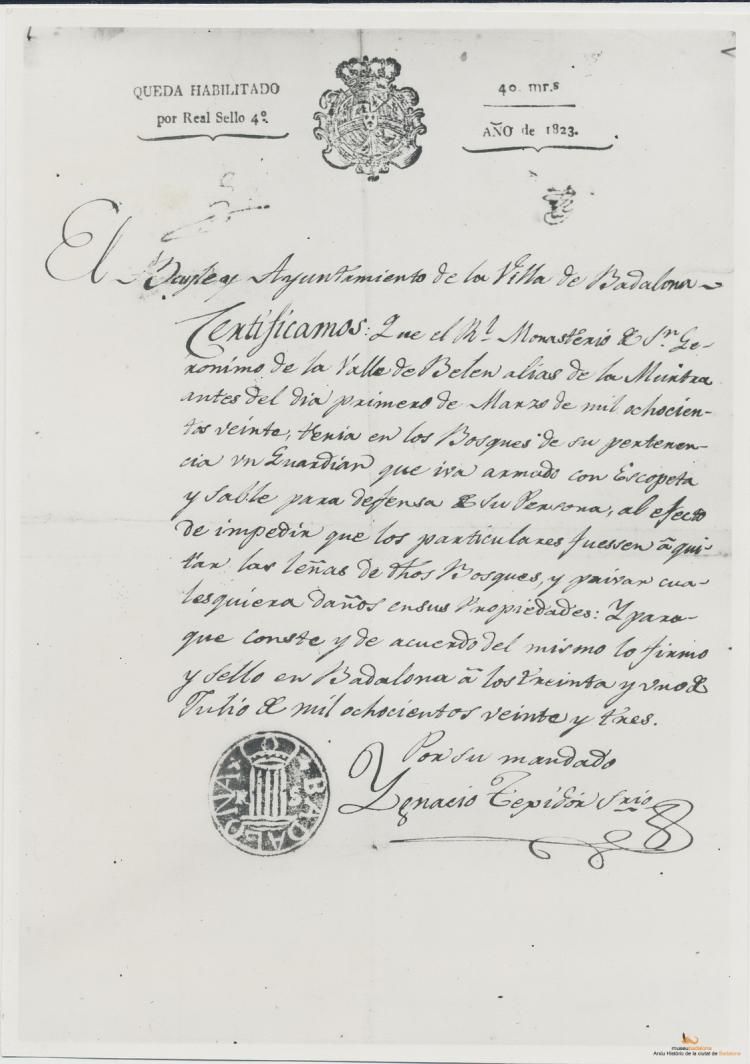 QUEDA HABILITADO
por Real Sello 4º.
40 mr.s
AÑO de 1823.
El Bayle y Ayuntamiento de la Villa de Badalona
Certificamos: Que el Rl. Monasterio de Sn. Ge-
ronimo de la Valle de Belen alias de la Murtra
antes del dia primero de Marzo de mil ochocien-
tos veinte, tenia en los Bosques de su pertenen-
cia vn Guardian que iva armado con Escopeta
y Sable para defensa de su Persona, al efecto
de impedir que los particulares fuessen â qui-
tar las leñas de dhos Bosques, y privar cua-
lesquiera daños en sus Propiedades: Y para
que conste y de acuerdo del mismo lo firmo
y sello en Badalona â los treinta y vno de
Julio de mil ochocientos veinte y tres.
Por su mandado
Ygnacio Tepidór Srio
BADALONA
museubadalona
Arxiu Històric de la ciutat de Badalona